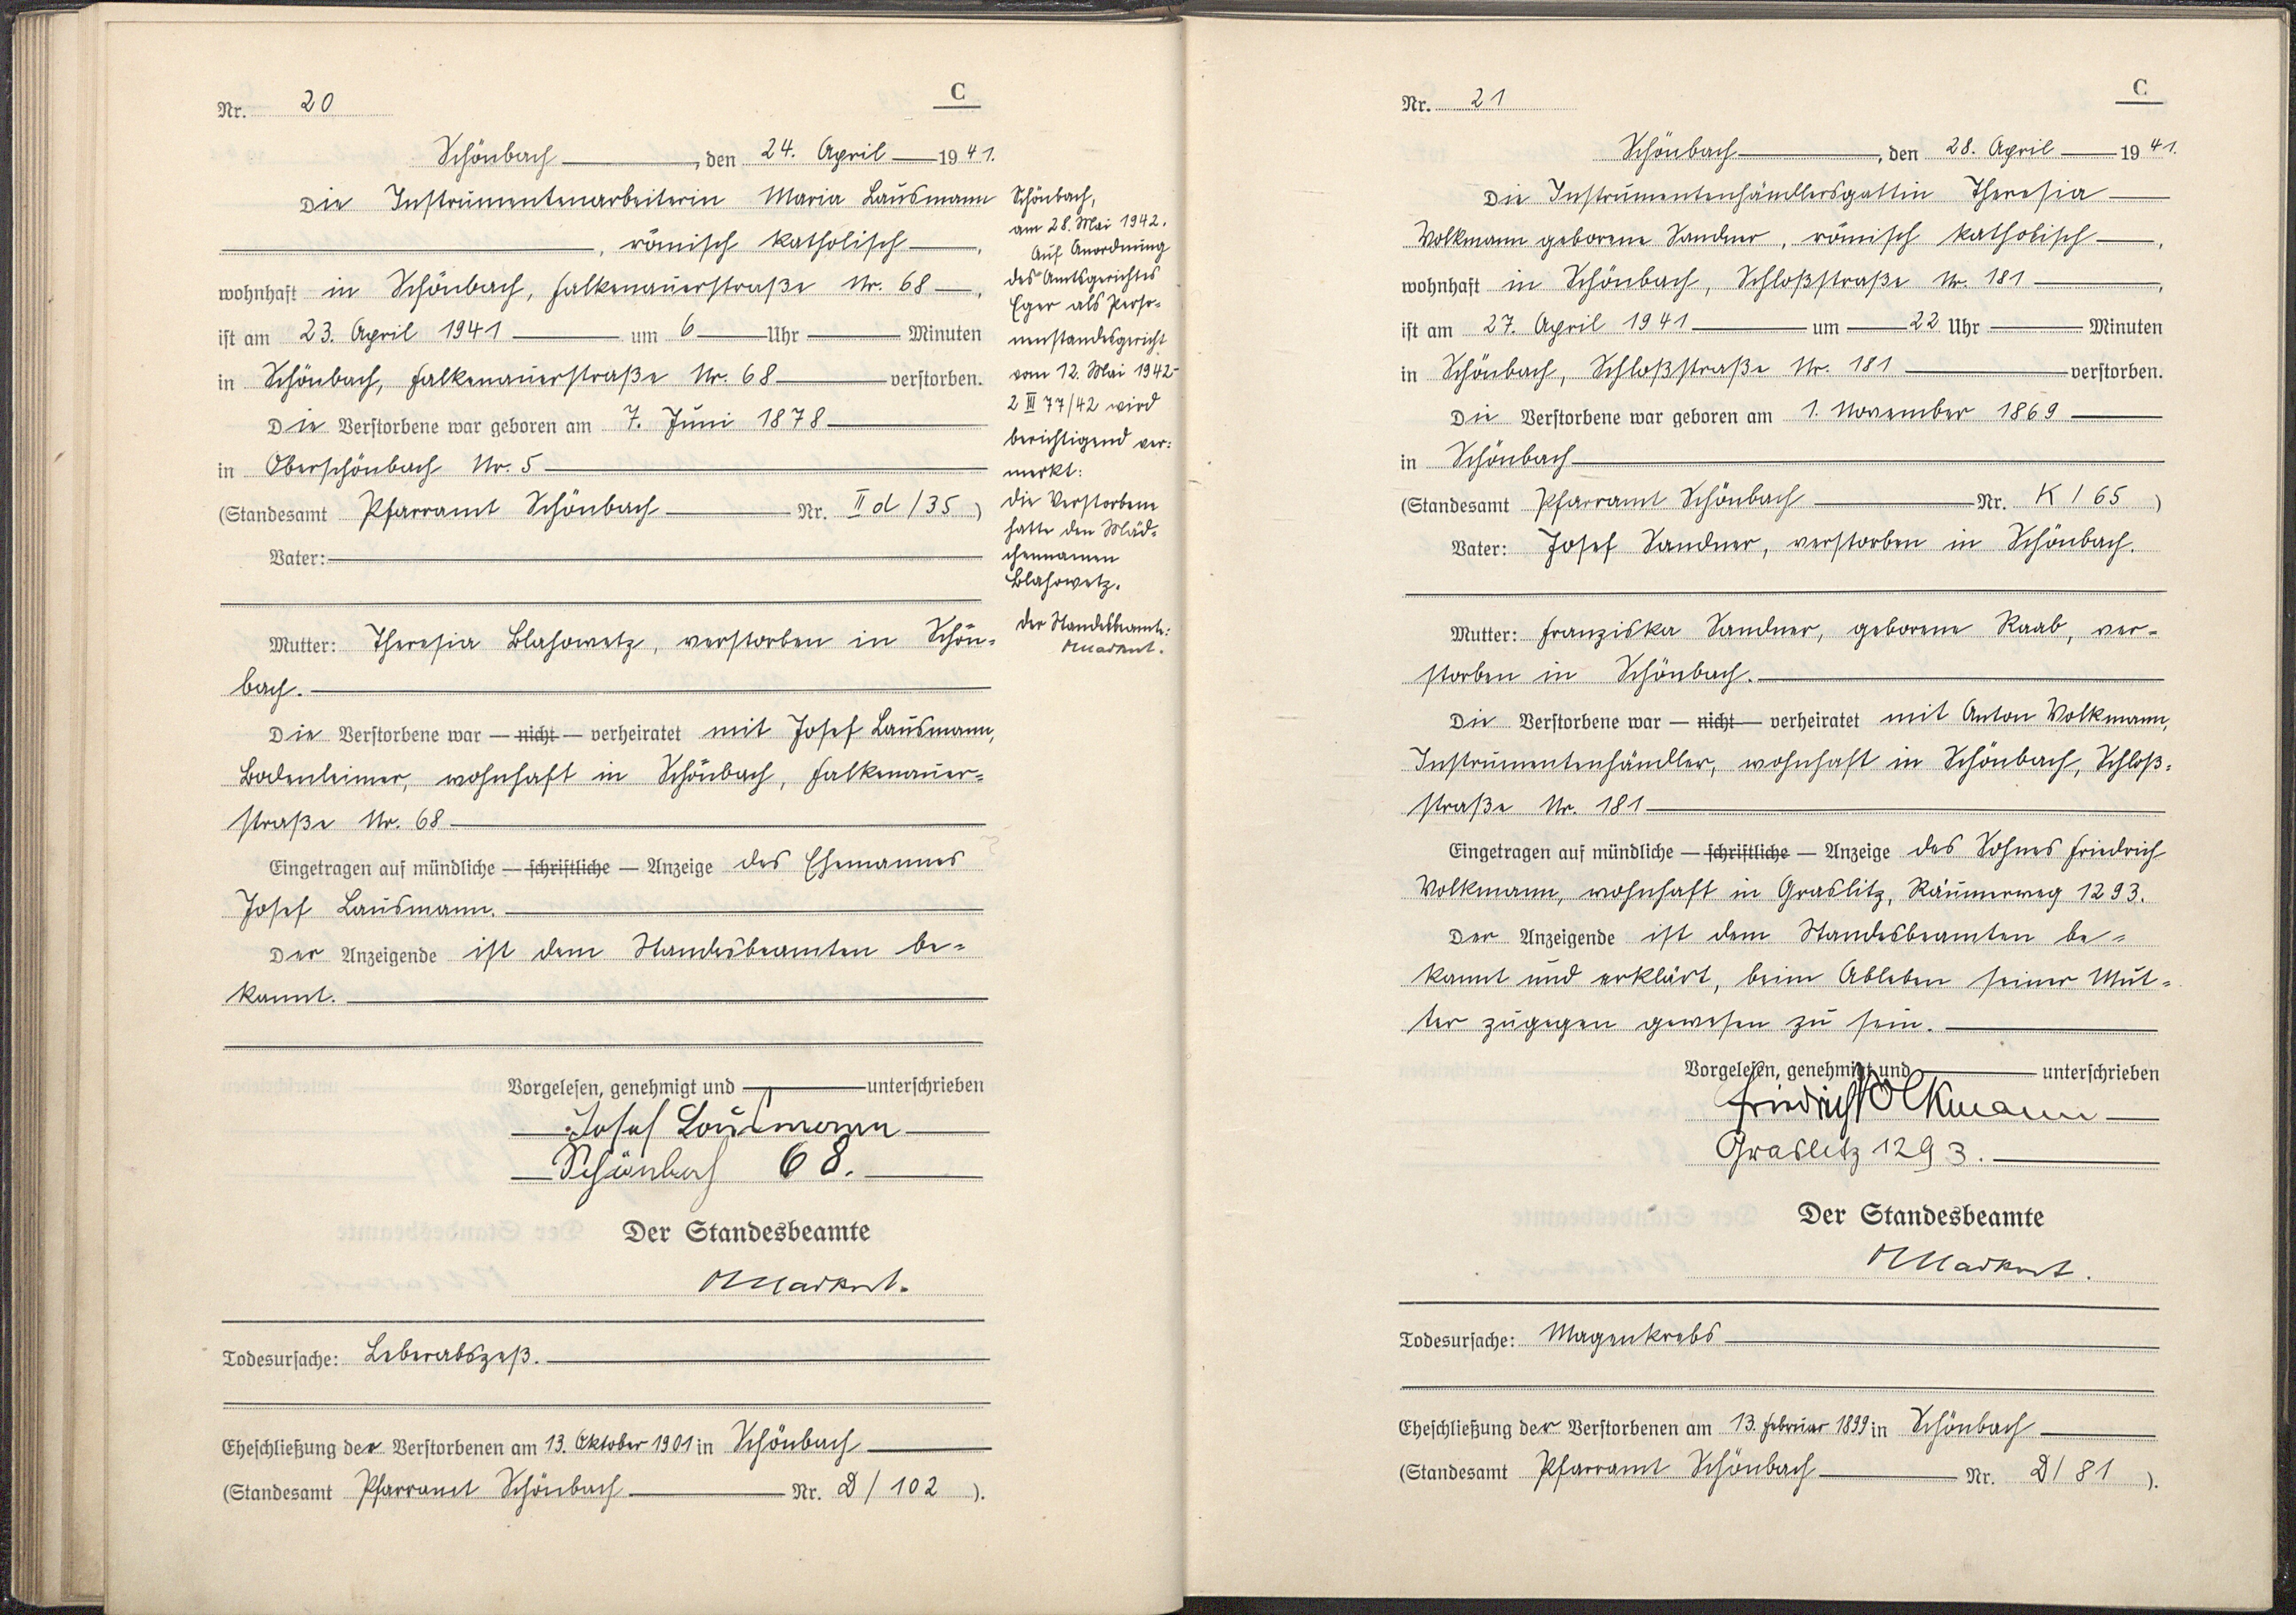 Nr. 20
C
Schönbach, den 24. April 1941.
Die Instrumentenarbeiterin Maria Lausmann
, römisch katholisch,
wohnhaft in Schönbach, Falkenauerstraße Nr. 68,
ist am 23. April 1941 um 6 Uhr Minuten
in Schönbach, Falkenauerstraße Nr. 68 verstorben.
Die Verstorbene war geboren am 7. Juni 1878
in Oberschönbach Nr. 5
(Standesamt Pfarramt Schönbach Nr. II d / 35)
Vater:
Mutter: Theresia Blahowetz, verstorben in Schön=
bach.
Die Verstorbene war — nicht — verheiratet mit Josef Lausmann,
Bodenleimer, wohnhaft in Schönbach, Falkenauer=
straße Nr. 68
Eingetragen auf mündliche — schriftliche — Anzeige des Ehemannes
Josef Lausmann.
Der Anzeigende ist dem Standesbeamten be=
kannt.
Vorgelesen, genehmigt und unterschrieben
Josef Lausmann
Schönbach 68.
Der Standesbeamte
Markert.
Todesursache: Leberabszeß.
Eheschließung der Verstorbenen am 13. Oktober 1901 in Schönbach
(Standesamt Pfarramt Schönbach Nr. D / 102).
Schönbach,
am 28. Mai 1942.
Auf Anordnung
des Amtsgerichtes
Eger als Perso=
nenstandsgericht
vom 12. Mai 1942-
2 III 77/42 wird
berichtigend ver=
merkt:
Die Verstorbene
hatte den Mäd=
chennamen
Blahowetz.
Der Standesbeamte:
Markert.
Nr. 21
C
Schönbach, den 28. April 1941.
Die Instrumentenhändlersgattin Theresia
Volkmann geborene Sandner, römisch katholisch,
wohnhaft in Schönbach, Schloßstraße Nr. 181,
ist am 27. April 1941 um 22 Uhr Minuten
in Schönbach, Schloßstraße Nr. 181 verstorben.
Die Verstorbene war geboren am 1. November 1869
in Schönbach
(Standesamt Pfarramt Schönbach Nr. K / 65)
Vater: Josef Sandner, verstorben in Schönbach.
Mutter: Franziska Sandner, geborene Raab, ver=
storben in Schönbach.
Die Verstorbene war — nicht — verheiratet mit Anton Volkmann,
Instrumentenhändler, wohnhaft in Schönbach, Schloß=
straße Nr. 181
Eingetragen auf mündliche — schriftliche — Anzeige des Sohnes Friedrich
Volkmann, wohnhaft in Graslitz, Räumerweg 1293.
Der Anzeigende ist dem Standesbeamten be=
kannt und erklärt, beim Ableben seiner Mut=
ter zugegen gewesen zu sein.
Vorgelesen, genehmigt und unterschrieben
Friedrich Volkmann
Graslitz 1293.
Der Standesbeamte
Markert.
Todesursache: Magenkrebs
Eheschließung der Verstorbenen am 13. Februar 1899 in Schönbach
(Standesamt Pfarramt Schönbach Nr. D / 81).